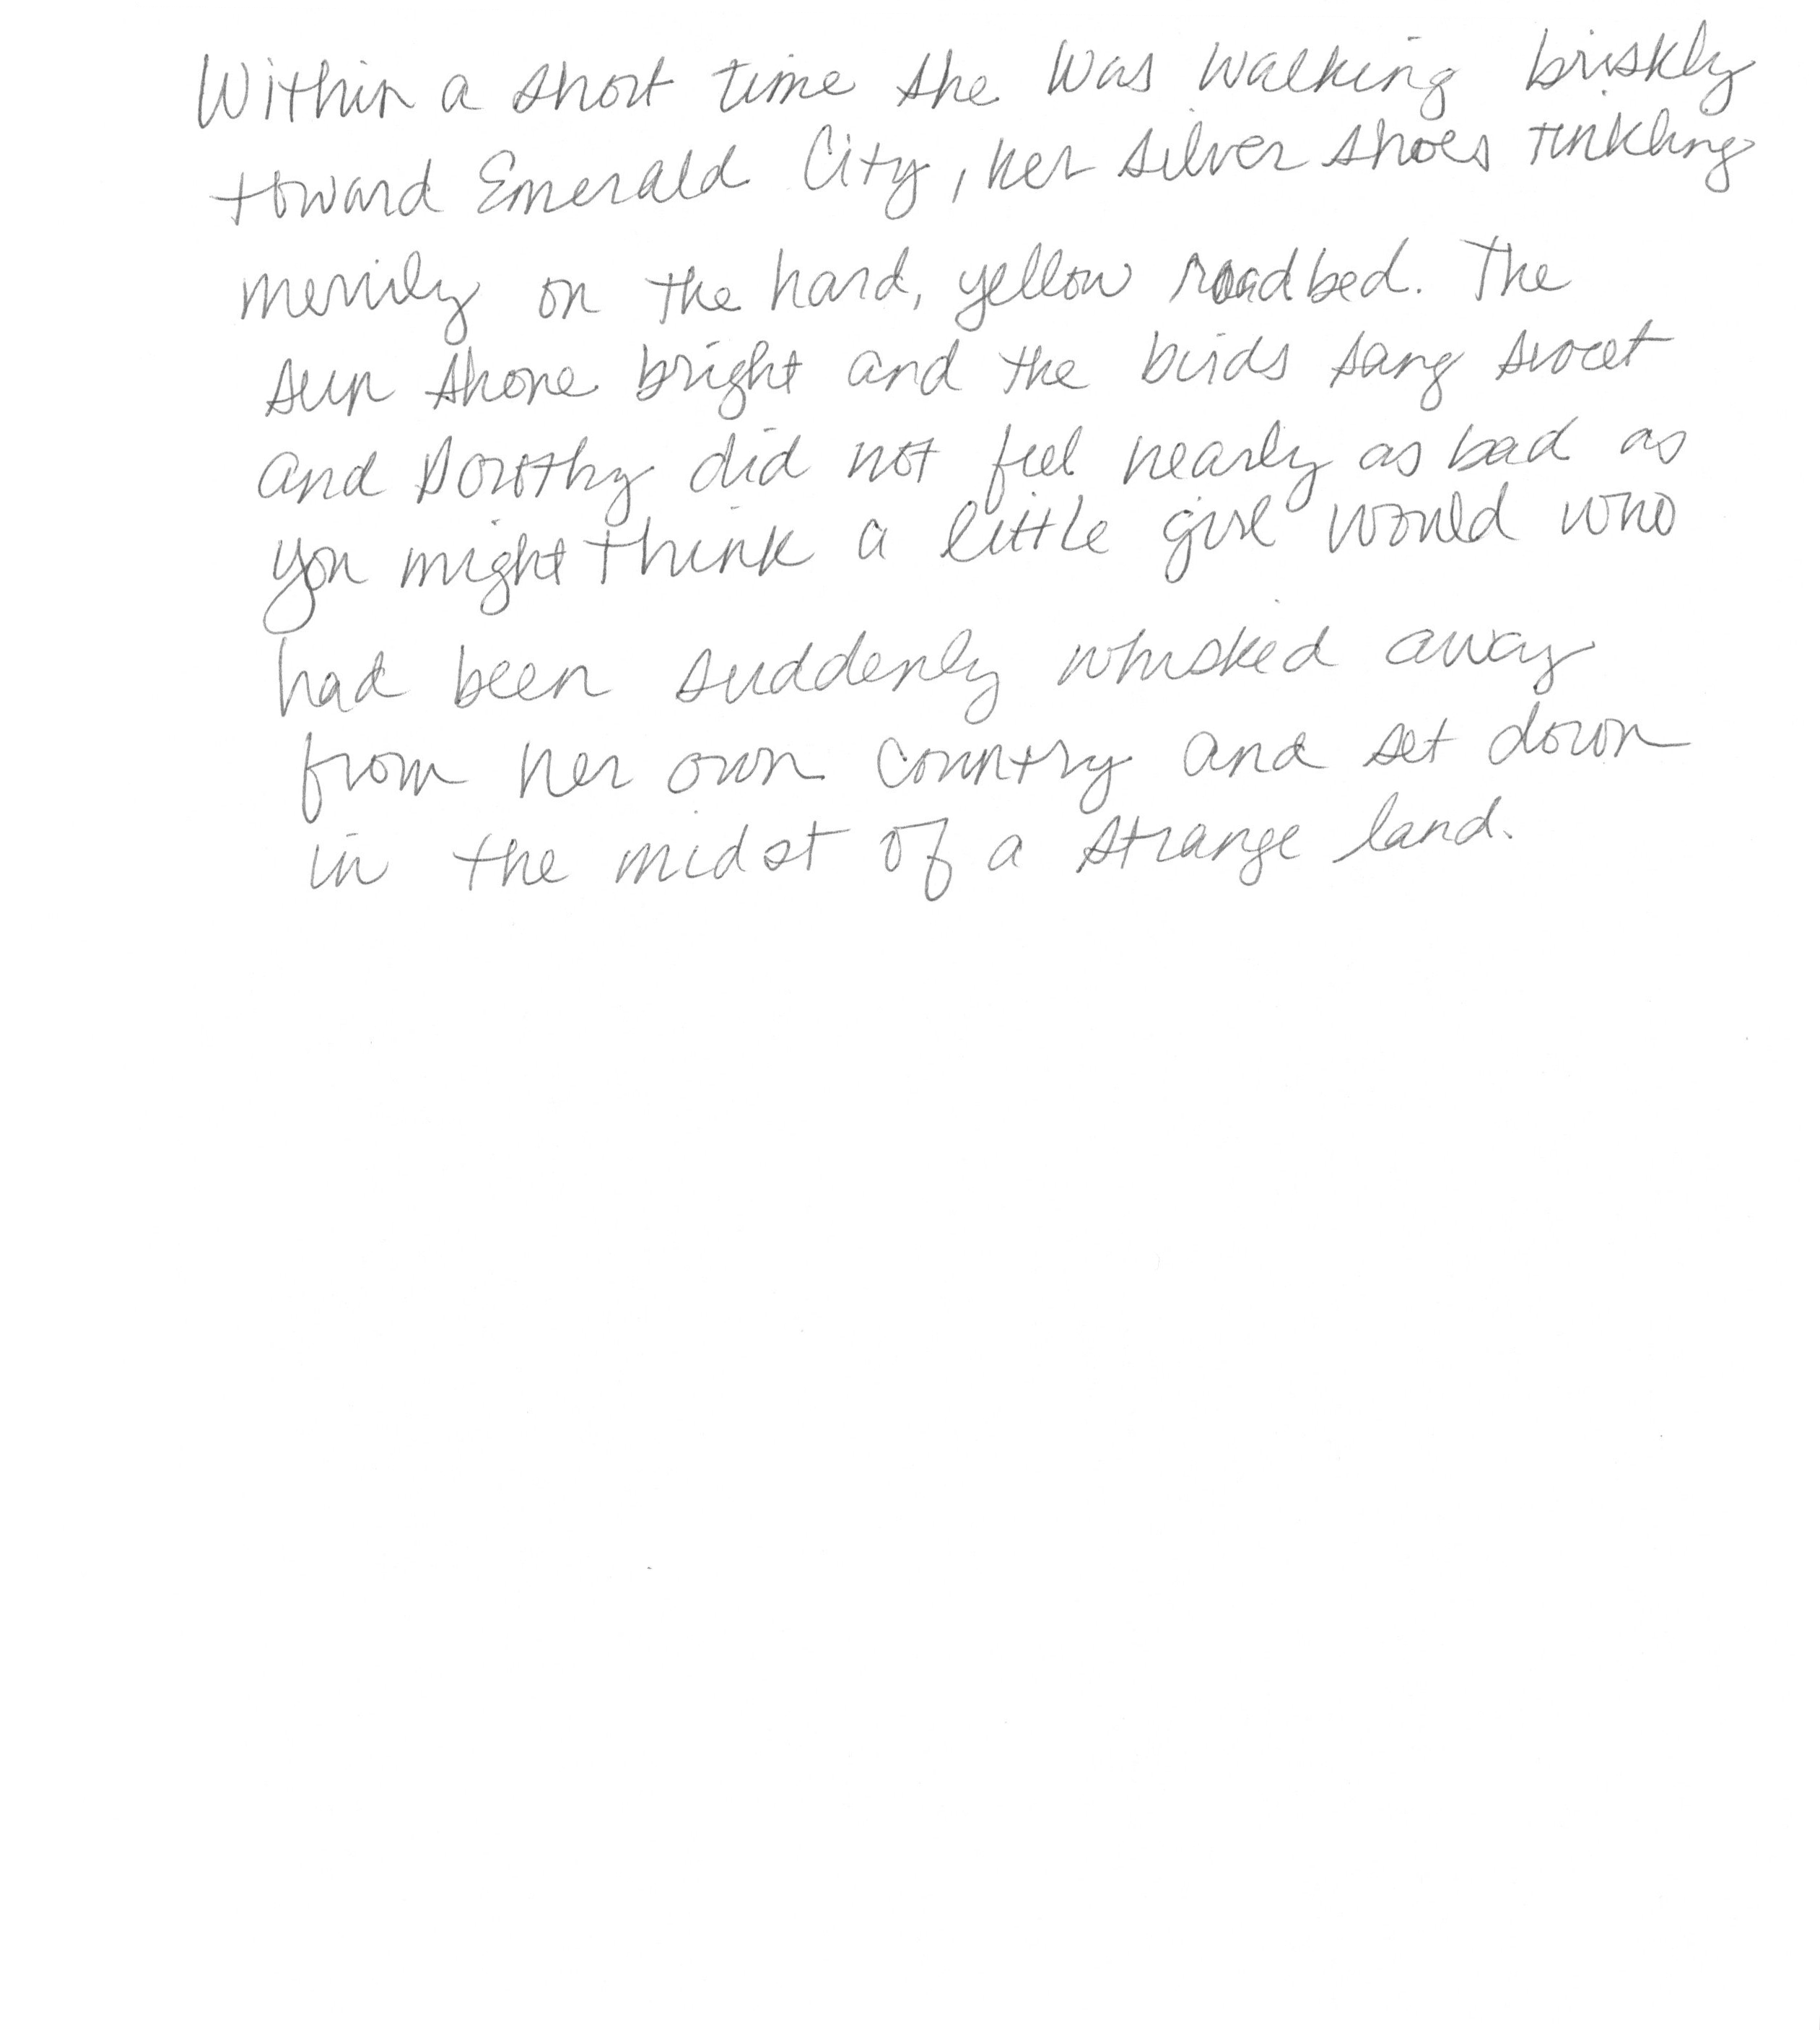 Within a short time she was walking briskly
toward Emerald City, her silver shoes tinkling
merrily on the hard, yellow roadbed. The
sun shone bright and the birds sang sweet
and Dorothy did not feel nearly as bad as
you might think a little girl would who
had been suddenly whisked away
from her own country and set down
in the midst of a strange land.